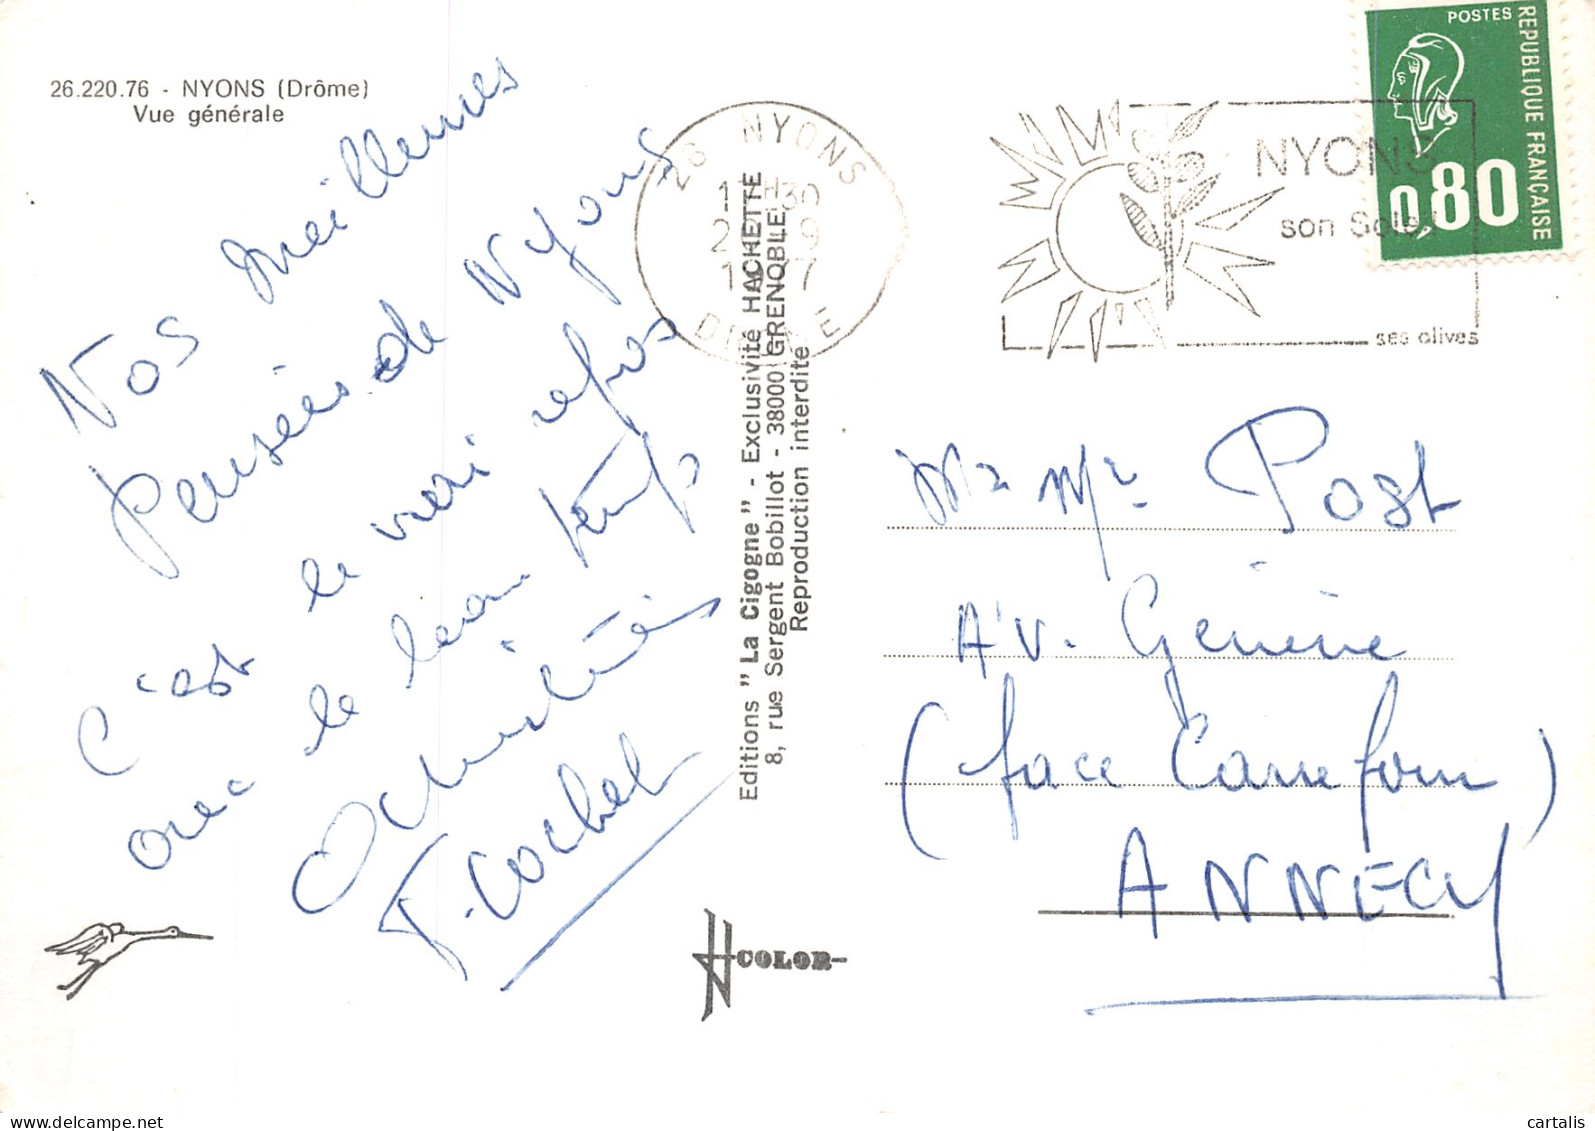 26.220.76 - NYONS (Drôme)
Vue générale
Nos meilleures
pensées de Nyons
c'est le vrai repos
avec le beau temps
Amitiés
T. Cochet
Editions "La Cigogne" - Exclusivité HACHETTE
8, rue Sergent Bobillot - 38000 GRENOBLE
Reproduction interdite
COLOR
26 NYONS
H30
DRÔME
NYONS
son Soleil
ses olives
POSTES
REPUBLIQUE FRANÇAISE
0,80
Mr Mr Post
Av. Genève
(face Carrefour)
ANNECY
cartalis
delcampe.net